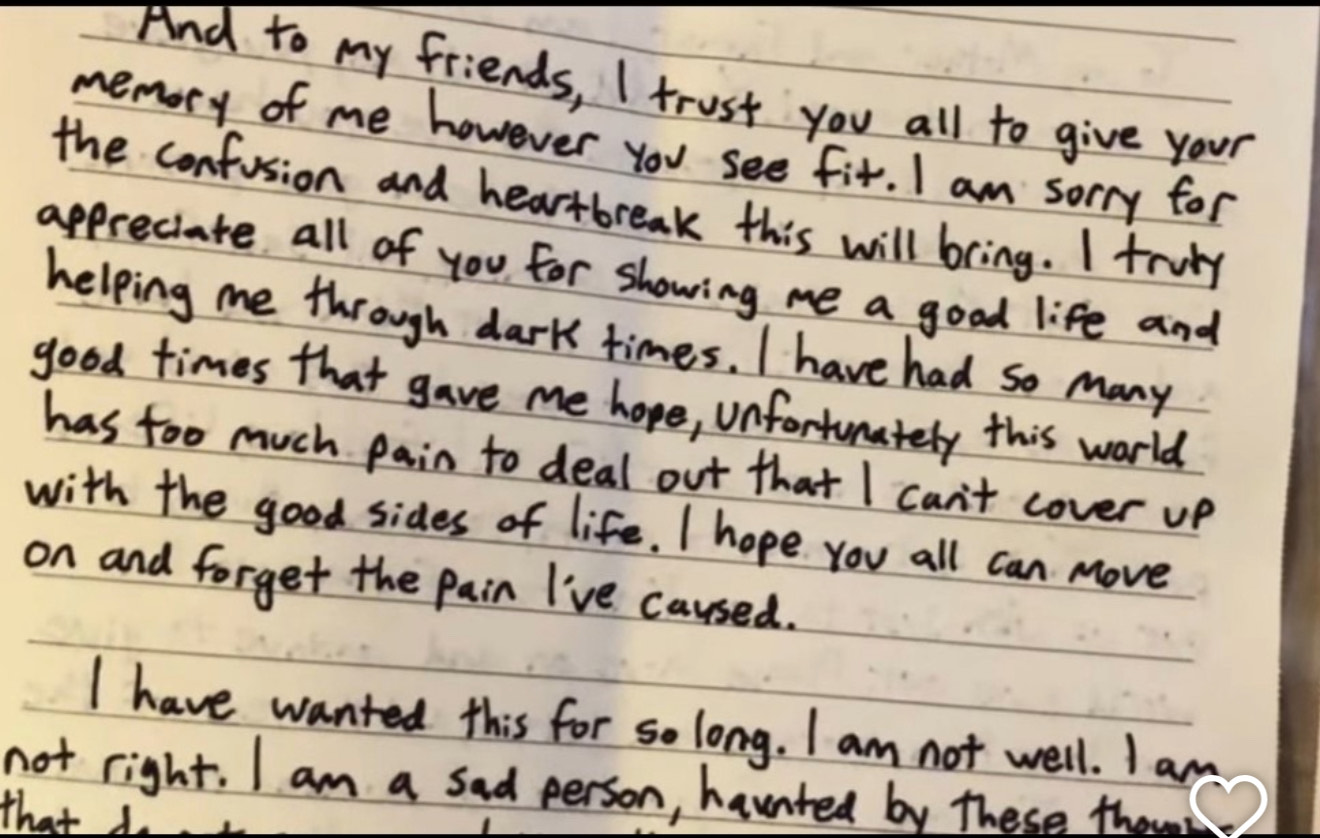 And to my friends, I trust you all to give your
memory of me however you see fit. I am sorry for
the confusion and heartbreak this will bring. I truly
appreciate all of you for showing me a good life and
helping me through dark times. I have had so many
good times that gave me hope, unfortunately this world
has too much pain to deal out that I can't cover up
with the good sides of life. I hope you all can move
on and forget the pain I've caused.
I have wanted this for so long. I am not well. I am
not right. I am a sad person, haunted by these
that